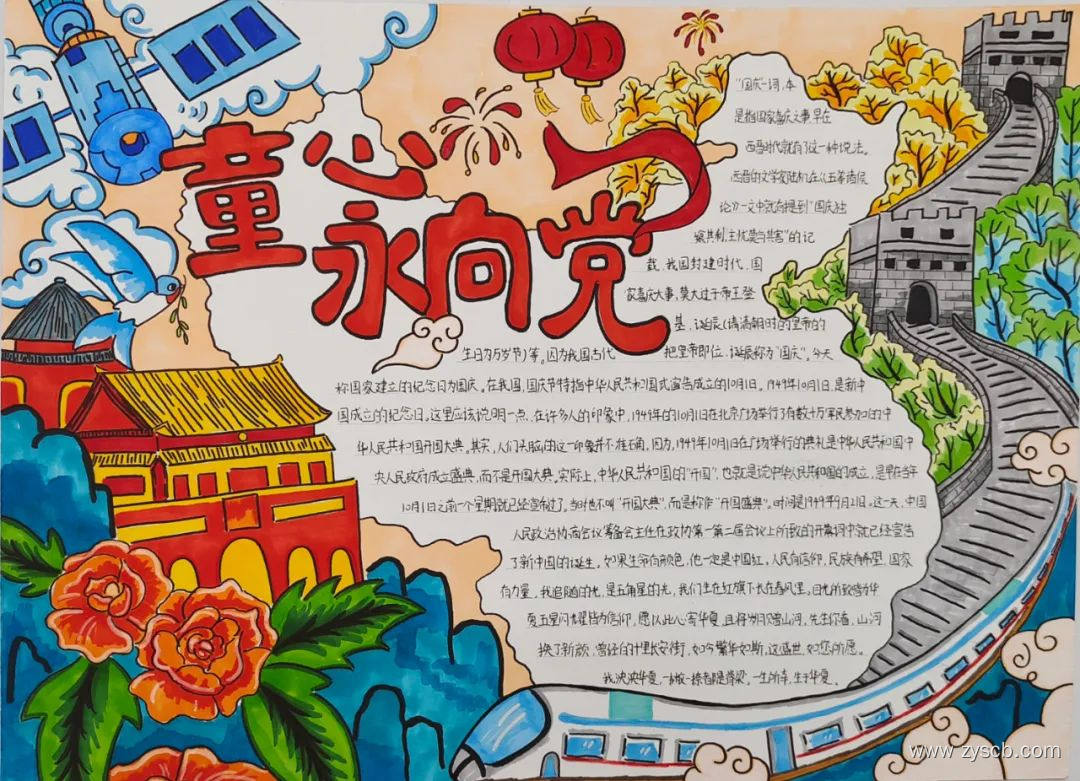 童心
永向党
"国庆"一词,本
是指国家喜庆之事早在
西晋时代就有了这一种说法。
西晋的文学家陆机在《五等诸侯
论》一文中就有提到"国庆独
飨其利,主忧莫与其害"的记
载、我国封建时代、国
家喜庆大事,莫大过于帝王登
基、诞辰(清朝时的皇帝的
生日为万岁节)等。因为我国古代
把皇帝即位、诞辰称为"国庆"。今天
称国家建立的纪念日为国庆。在我国,国庆节特指中华人民共和国式宣告成立的10月1日。1949年10月1日,是新中
国成立的纪念日。这里应该说明一点、在许多人的印象中,1949年的10月1日在北京广场举行了有数十万军民参加的中
华人民共和国开国大典。其实,人们头脑的这一印象并不准确,因为,1949年10月1日在广场举行的典礼是中华人民共和国中
央人民政府成立盛典,而不是开国大典。实际上,中华人民共和国的"开国",也就是说中华人民共和国的成立,是早在当年
10月1日之前一个星期就已经宣布过,当时也不叫"开国大典",而是称作"开国盛典"。时间是1949年9月21日。这一天,中国
人民政治协商会议筹备会主任在政协第一届会议上所致的开幕词中就已经宣告
了新中国的诞生。如果生命有颜色,他一定是中国红,人民有信仰,民族有希望,国家
有力量。我追随的光,是五角星的光,我们生在红旗下长在春风里。目光所致皆为华
夏五星闪耀皆为信仰,愿以此心寄华夏,且将岁月赠山河。先生你看,山河
换了新颜,曾经的十里长安街,如今繁华如斯,这盛世,如您所愿。
我泱泱华夏,一撇一捺都是脊梁。一生所幸,生于华夏。
www.zyscb.com